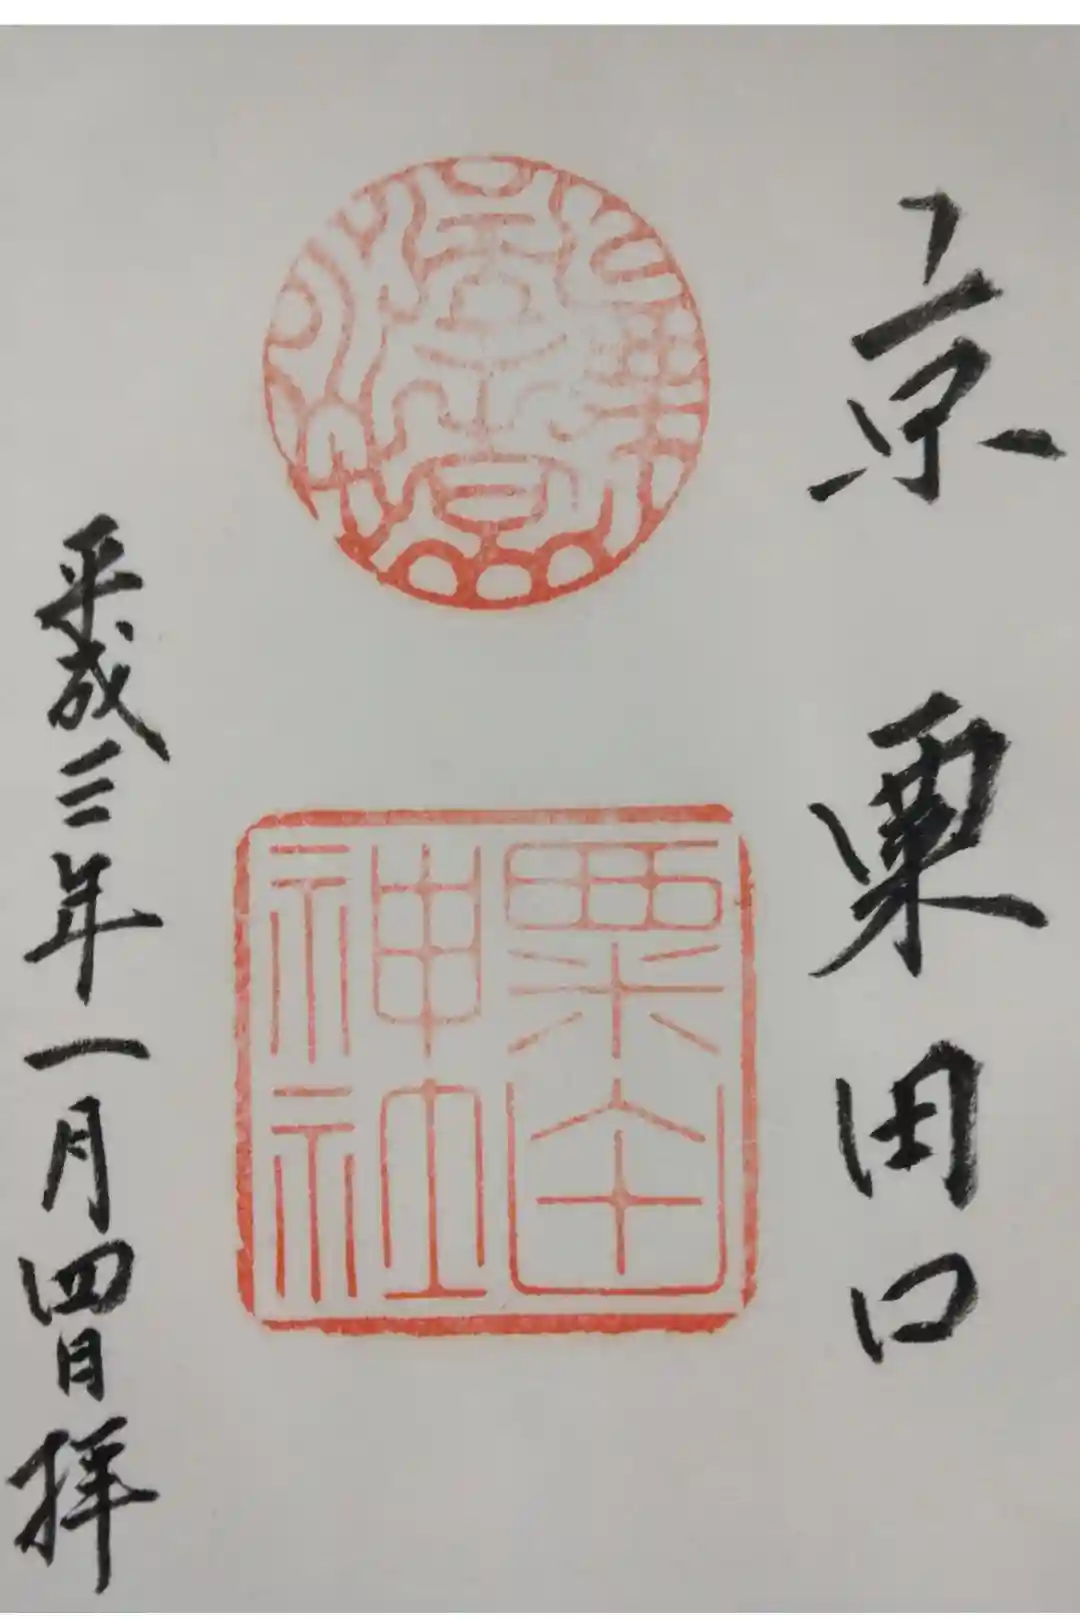 京 粟田口
粟田
神社
平成三年一月四日拝